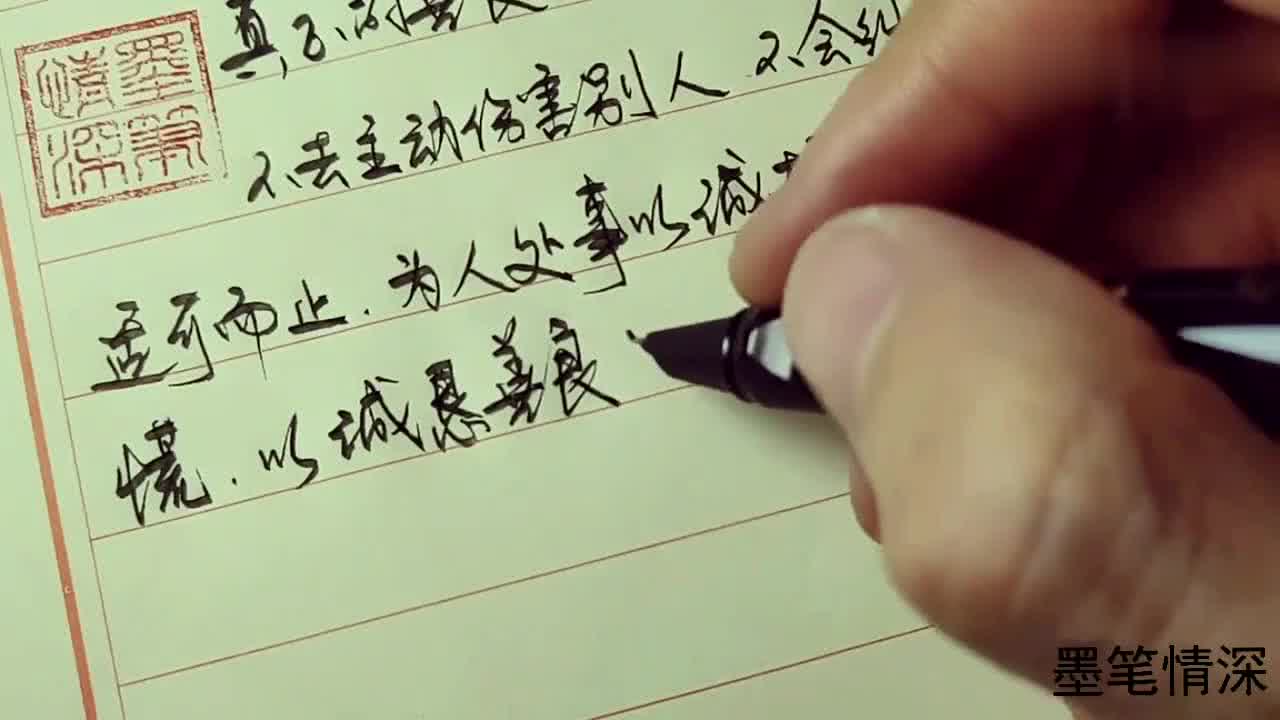 墨笔
情深
真正的善良
不去主动伤害别人 不会
适可而止.为人处事以诚
慌.以诚恳善良
墨笔情深